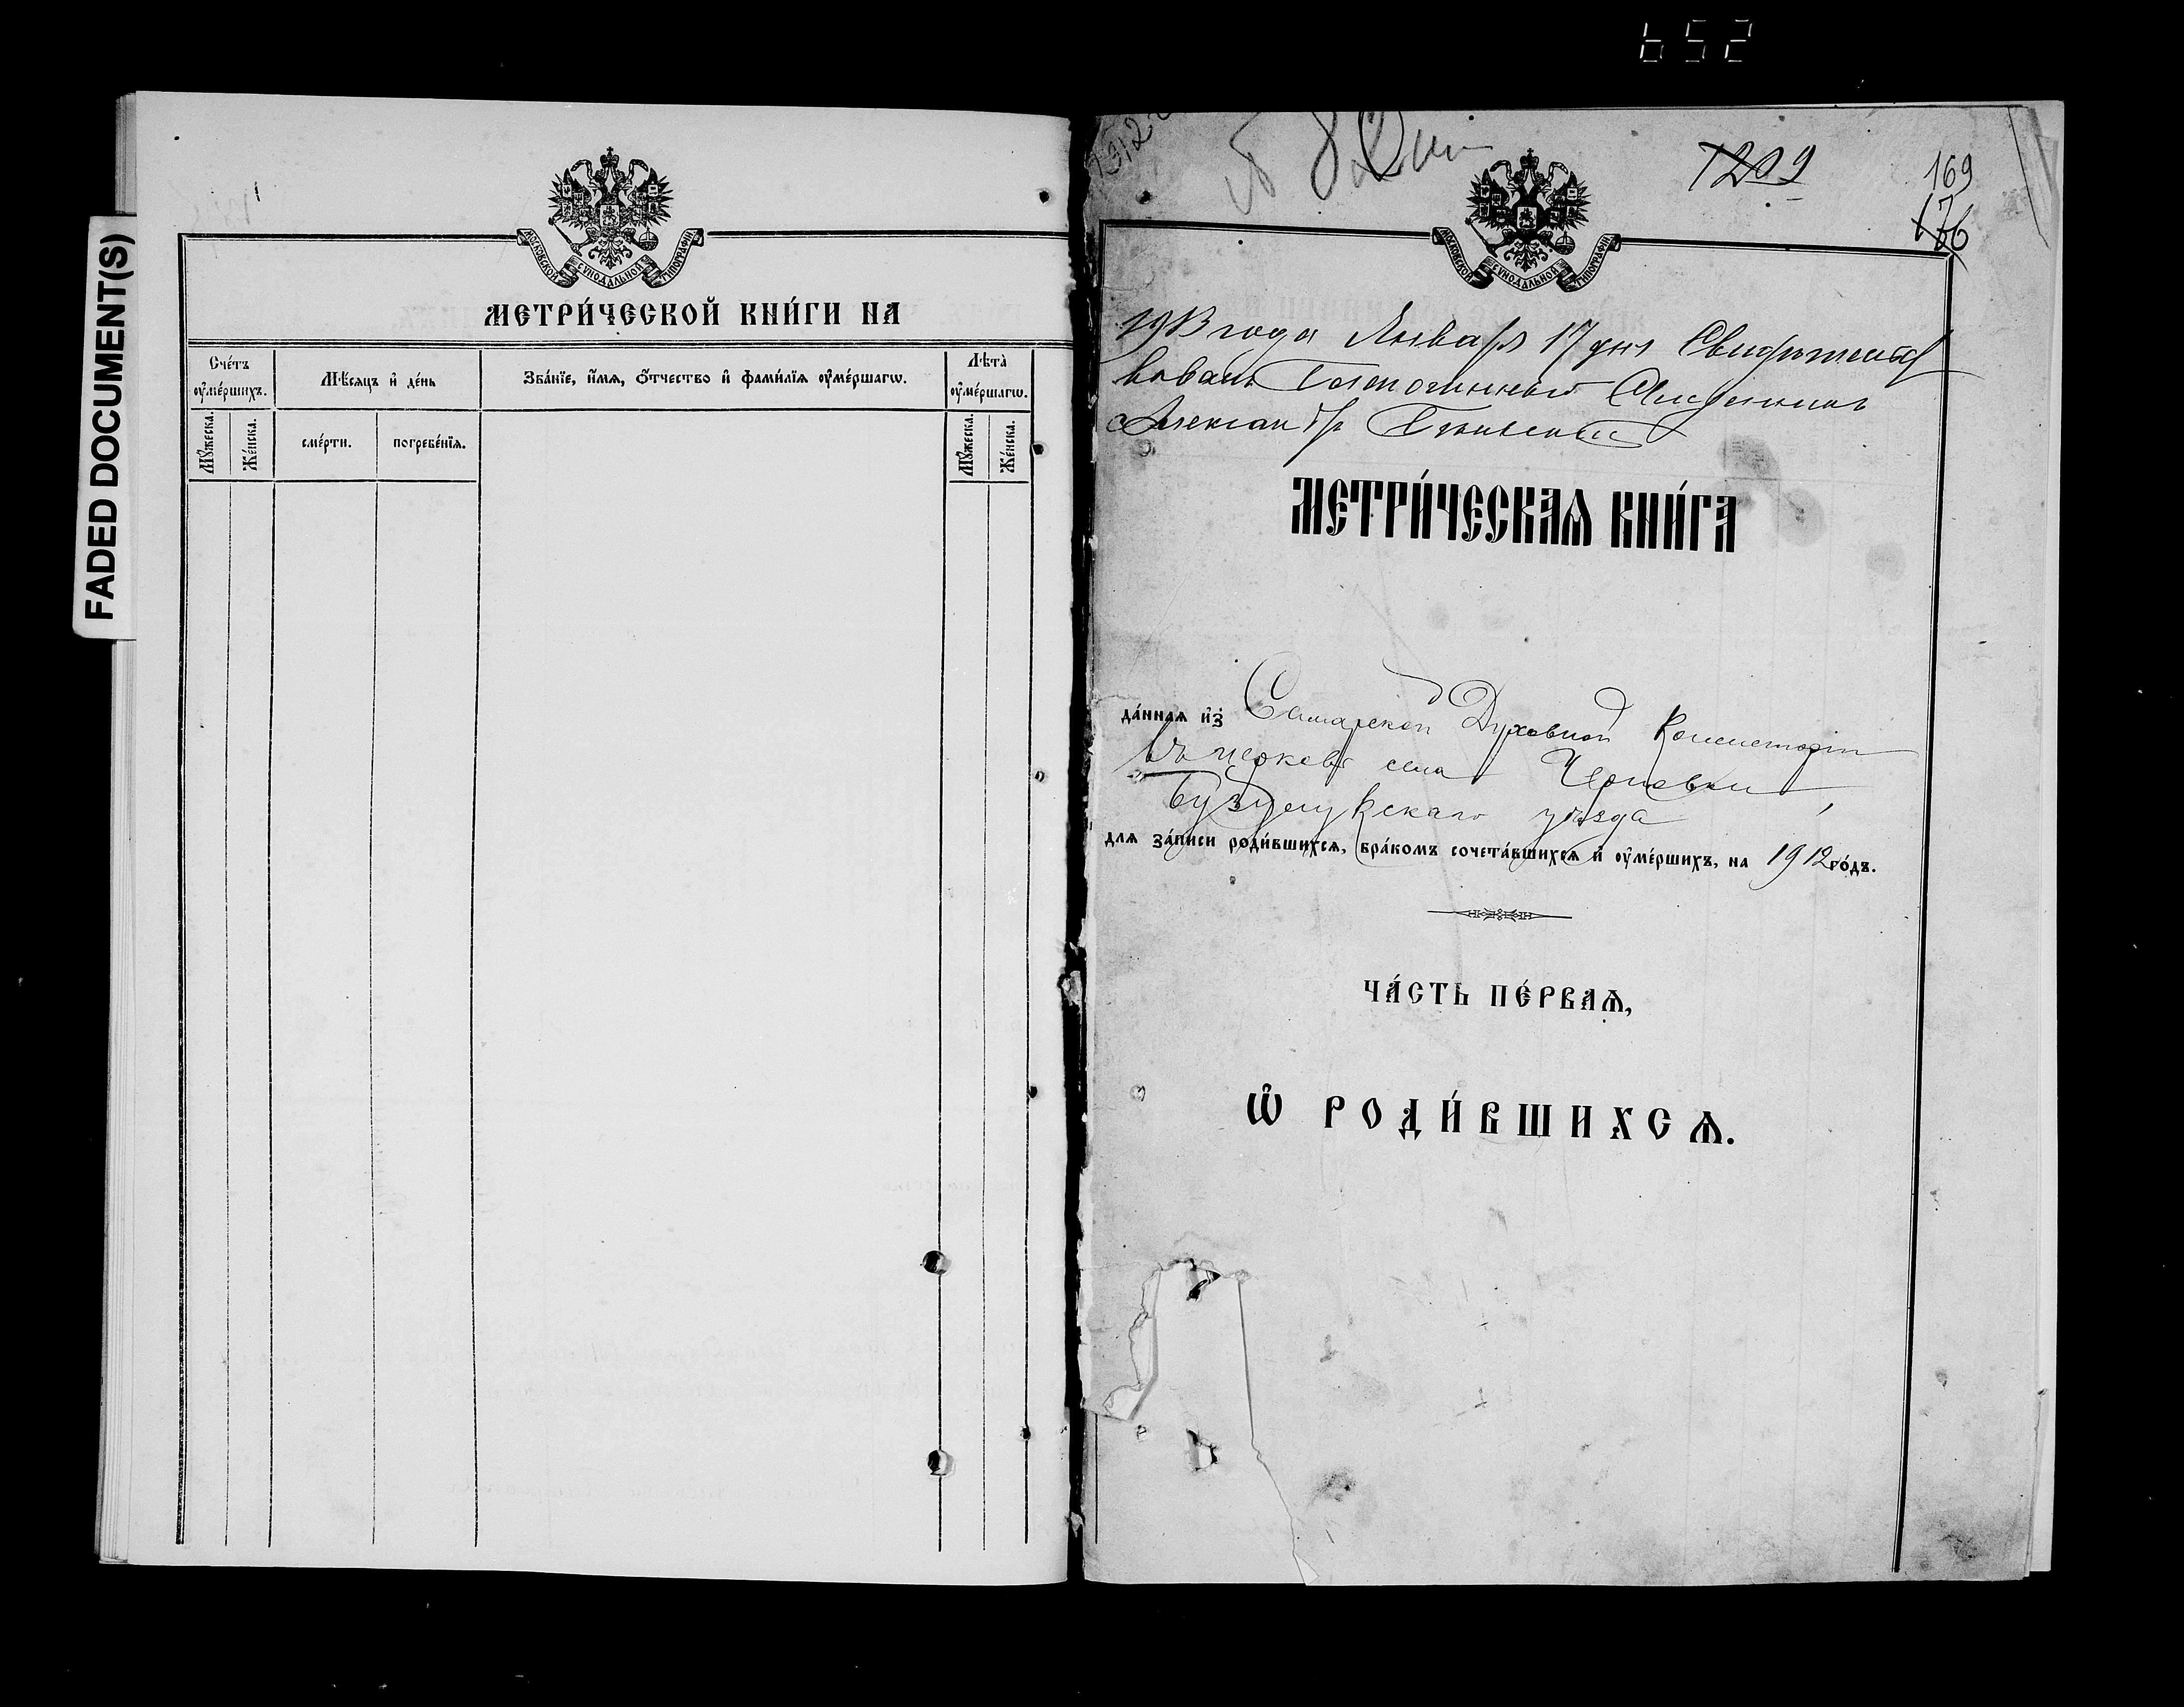 652
FADED DOCUMENT(S)
МОСКОВСКОЙ СѴНОДАЛЬНОЙ ТИПОГРАФІИ
МЕТРИ́ЧЕСКОЙ КНИ́ГИ НА
Сче́тъ оу҆ме́ршихъ.
Мѣ́сяцъ и҆ де́нь
Зва́нїе, и҆́мѧ, ѻ҆́тчество и҆ фами́лїѧ оу҆ме́ршагѡ.
Лѣ́та̀ оу҆ме́ршагѡ.
Мꙋ́жеска.
Же́нска.
сме́рти.
погребе́нїѧ.
Мꙋ́жеска.
Же́нска.
1209
169
176
МОСКОВСКОЙ СѴНОДАЛЬНОЙ ТИПОГРАФІИ
1913 года Января 17 дня Свидѣтельст
вовалъ Благочинный Священникъ
Александръ
МЕТРИ́ЧЕСКАѦ КНИ́ГА
да́ннаѧ и҆з̾ Самарской Духовной Консисторіи
въ церковь села Черновки,
Бузулукскаго уѣзда
длѧ за́писи роди́вшихсѧ, бра́комъ сочета́вшихсѧ и҆ оу҆ме́ршихъ, на 1912 го́дъ.
ЧА́СТЬ ПЕ́РВАѦ,
Ѡ҆ РОДИ́ВШИХСѦ.